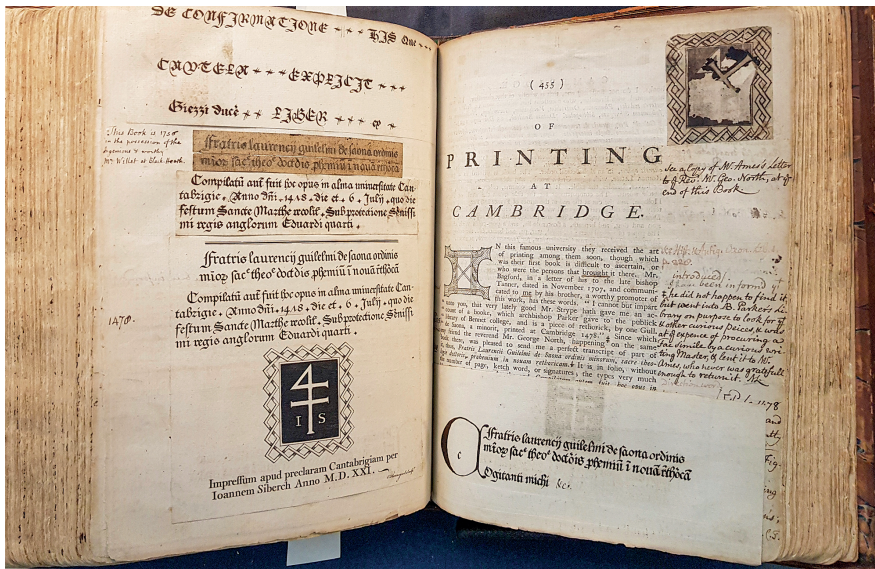 DE CONFIRMATIONE HIS Que
CAUTELA EXPLICIT
Giezzi ducē LIBER
This Book is 1756
in the possession of the
ingenious & worthy
Mr Willet at Black-heath.
Fratris laurencij guilelmi de saona ordinis
mīoꝝ sac͛ theo͛ doctoīs ꝓhemiū ī nouā rͭhōcā
Compilatū aut͛ fuit hoc opus in alma uniuersitate Can-
tabrigie. Anno dn̄i .1478. die et .6. Julij. quo die
festum Sancte Marthe recolit͛. Sub protectione Sh̄nissi
mi regis anglorum Eduardi quarti.
Fratris laurencij guilelmi de saona ordinis
mīoꝝ sac͛ theo͛ doctoīs ꝓhemiū ī nouā rͭhōcā
Compilatū aut͛ fuit hoc opus in alma uniuersitate Can-
tabrigie. Anno dn̄i .1478. die et .6. Julij. quo die
festum Sancte Marthe recolit͛. Sub protectione Sh̄nissi
mi regis anglorum Eduardi quarti.
1478.
I S
Impressum apud preclaram Cantabrigiam per
Ioannem Siberch Anno M.D.XXI.
(435)
OF
PRINTING
AT
CAMBRIDGE.
See a Copy of Mr. Ames's Letter
to ye Revd. Mr. Geo. North, at ye
end of this Book
IN this famous university they received the art
of printing among them soon, though which
was their first book is difficult to ascertain, or
who were the persons that brought it there. Mr.
Bagford, in a letter of his to the late bishop
Tanner, dated in November 1707, and communi-
cated to me by his brother, a worthy promoter of
this work, has these words, "I cannot but impart
unto you, that very lately good Mr. Strype hath gave me an ac-
count of a book, which archbishop Parker gave to the publick
library of Bennet college, and is a piece of rethorick, by one Gull.
de Saona, a minorit, printed at Cambridge 1478." Since which
my friend the reverend Mr. George North, happening on the same
book there, was pleased to send me a perfect transcript of part of
it, thus, Fratris Laurencii Guilelmi de Saona ordinis minorum, sacre theo-
logie doctoris, prohemium in nouam rethoricam. It is in folio, without
number of page, ketch word, or signatures, the types very much
introduced
been inform'd yt
he did not happen to find it,
but went into B. Parkers Li-
brary on purpose to look for ys
& other curious peices, & was
at ye expence of procuring a
fac simile by a curious wri-
ting Master, & lent it to Mr.
Ames, who never was gratefull
enough to return it.
1478
Fratris laurencij guilelmi de saona ordinis
mīoꝝ sac͛ theo͛ doctoīs ꝓhemiū ī nouā rͭhōcā
COgitanti michi &c.